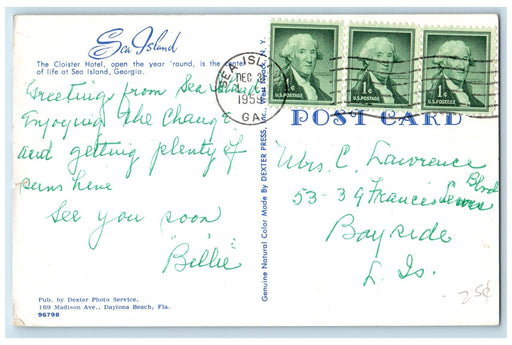 Sea Island
The Cloister Hotel, open the year 'round, is the center
of life at Sea Island, Georgia.
Greetings from Sea Island
Enjoying the Change
and getting plenty of
suns here
See you soon
"Billie"
Pub. by Dexter Photo Service,
189 Madison Ave., Daytona Beach, Fla.
96798
Genuine Natural Color Made By DEXTER PRESS, Inc. West Nyack, N. Y.
SEA ISLAND
DEC
GA.
1¢
U.S. POSTAGE
1¢
U.S. POSTAGE
1¢
U.S. POSTAGE
POST CARD
Mrs. C. Lawrence
53-39 Francis Lewis Blvd
Bayside
L. Is.
25¢